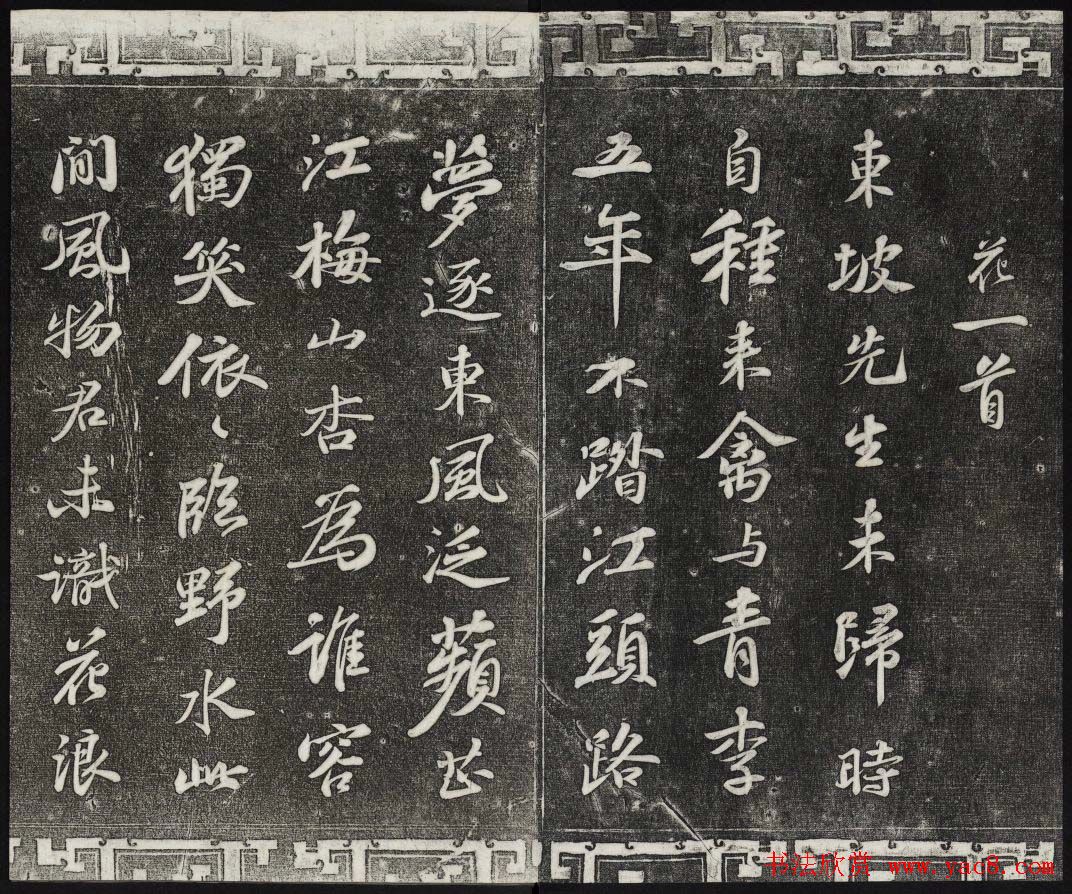 花一首
東坡先生未歸時
自種来禽与青李
五年不踏江頭路
夢逐東風泛蘋芷
江梅山杏為誰容
獨笑依〻臨野水此
間風物君未識花浪
书法欣赏 www.yac8.com